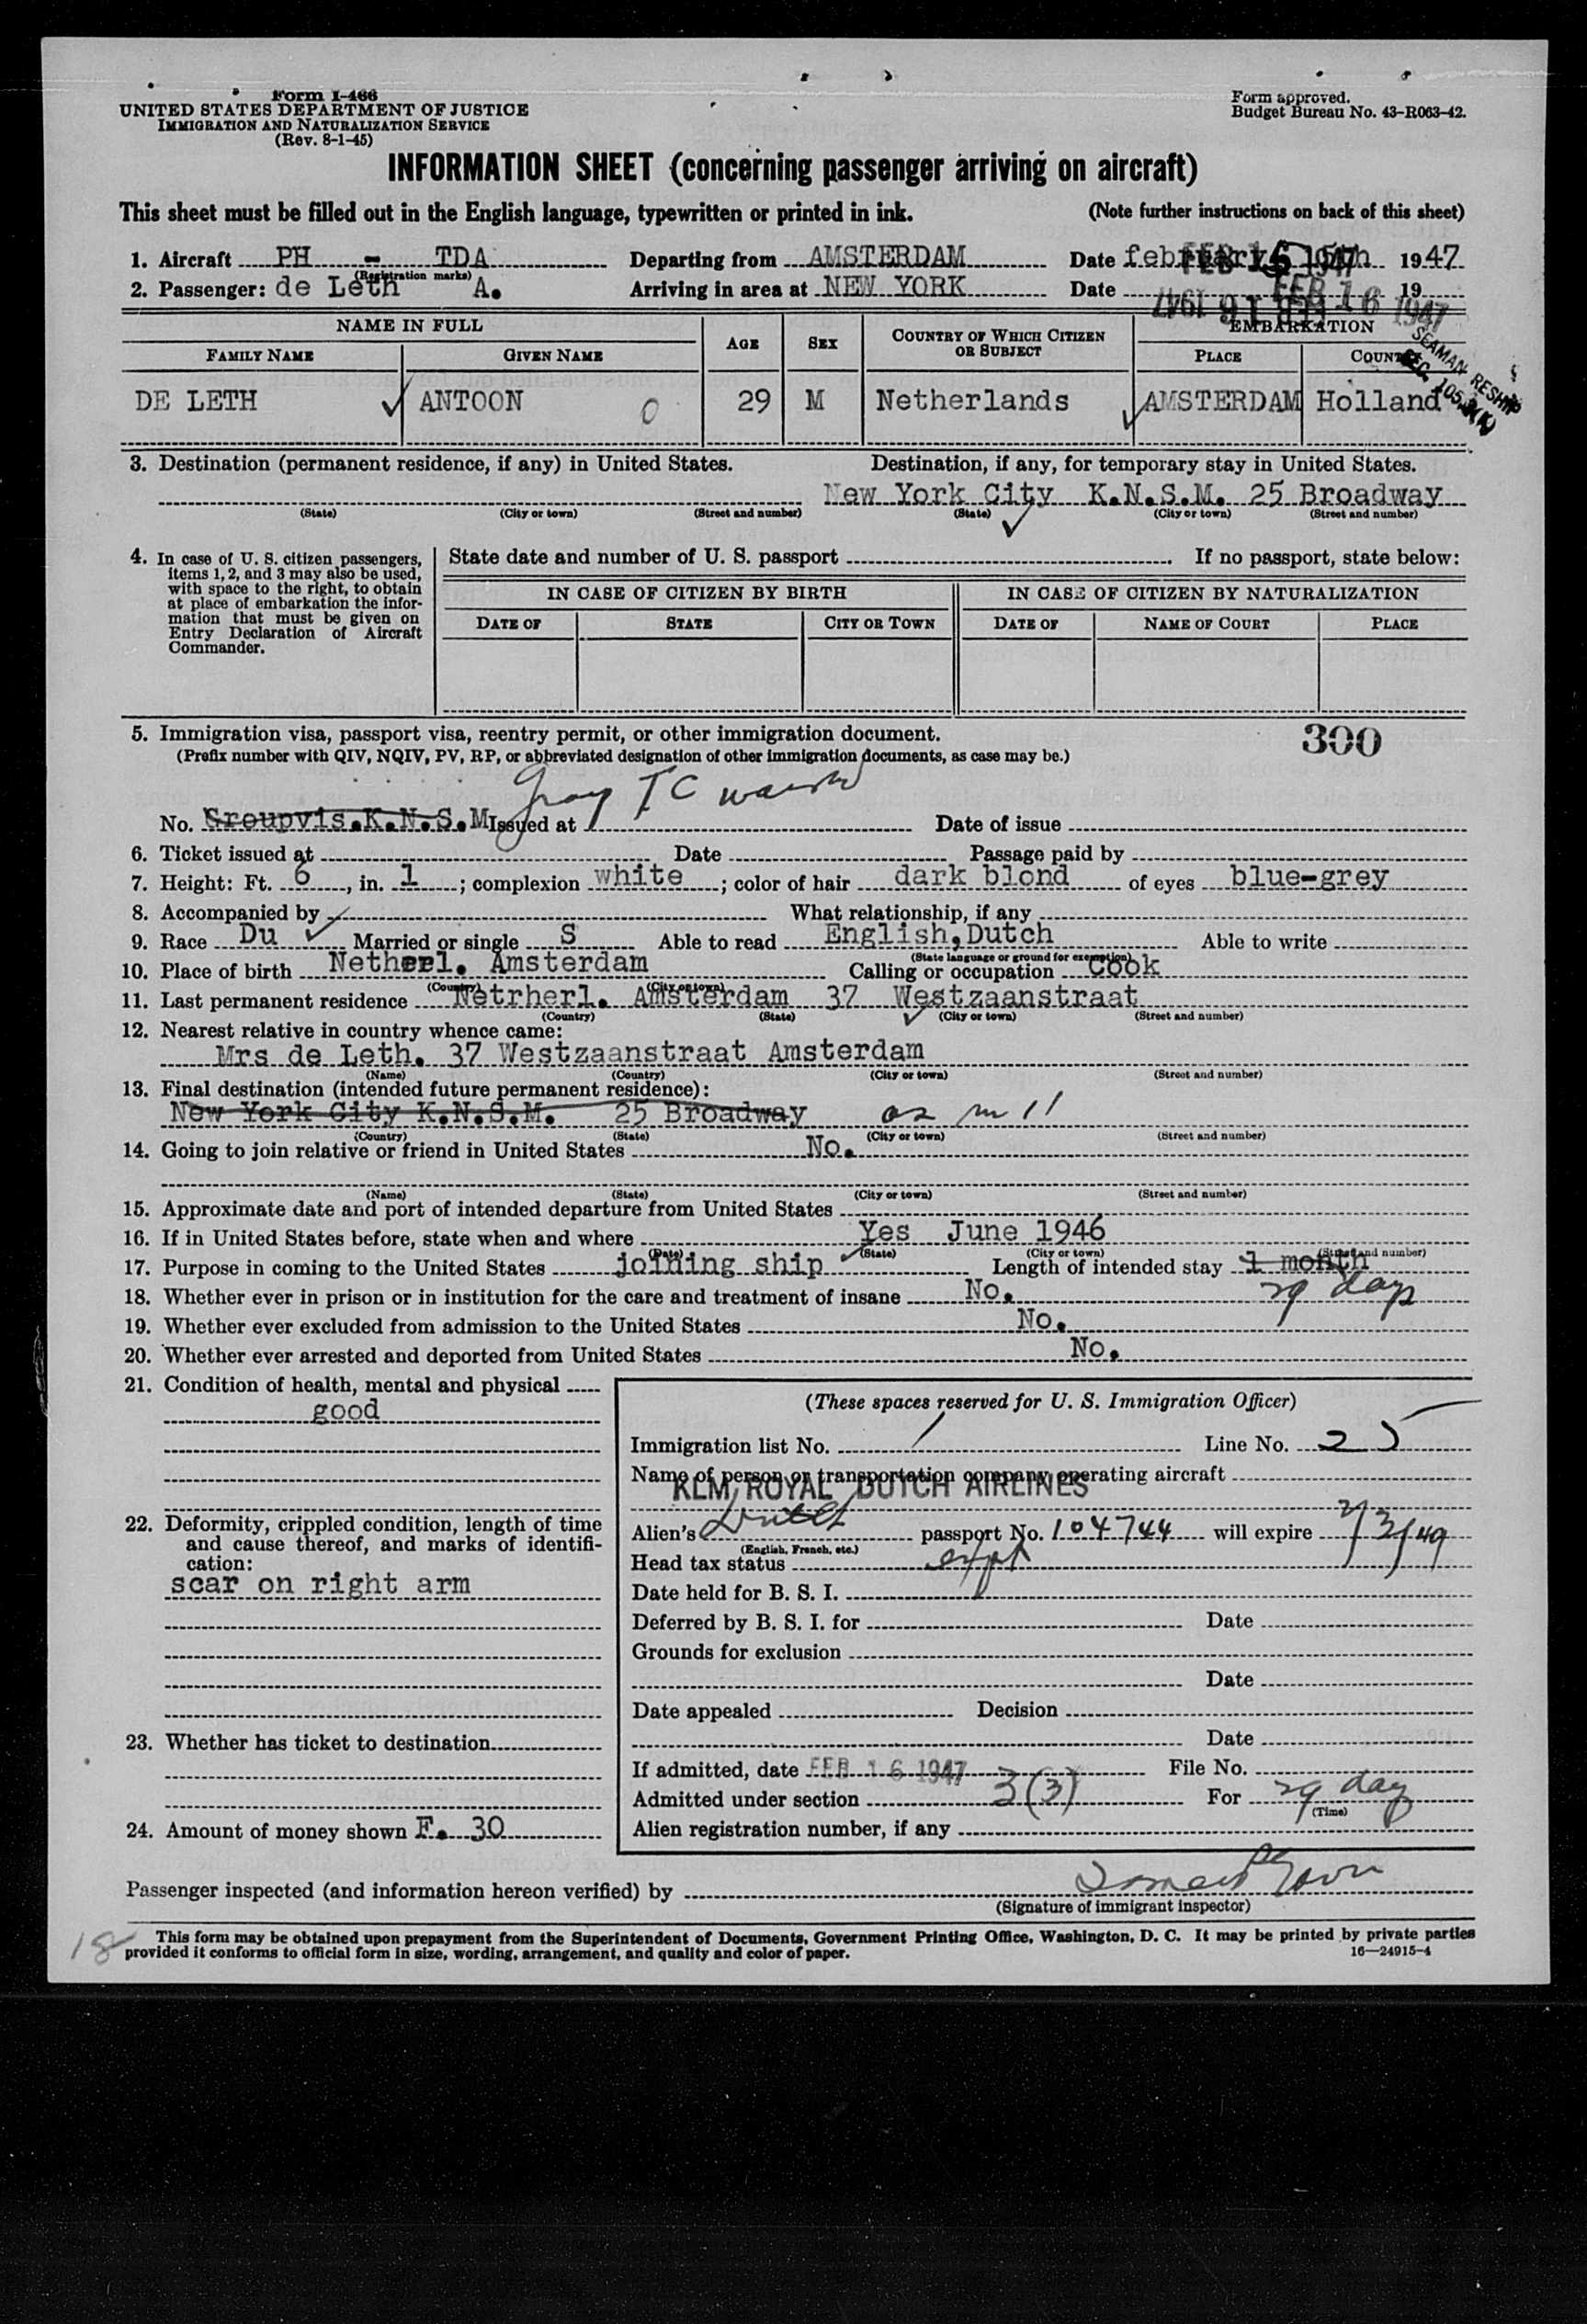 Form I-466
UNITED STATES DEPARTMENT OF JUSTICE
IMMIGRATION AND NATURALIZATION SERVICE
(Rev. 8-1-45)
Form approved.
Budget Bureau No. 43-R063-42.
INFORMATION SHEET (concerning passenger arriving on aircraft)
This sheet must be filled out in the English language, typewritten or printed in ink. (Note further instructions on back of this sheet)
1. Aircraft PH - TDA Departing from AMSTERDAM Date february 1947
(Registration marks)
2. Passenger: de Leth A. Arriving in area at NEW YORK Date FEB 16 1947 19
FEB 16 1947
NAME IN FULL AGE SEX COUNTRY OF WHICH CITIZEN OR SUBJECT EMBARKATION
FAMILY NAME GIVEN NAME PLACE COUNTRY
SEAMAN RESHIP
SEC. 105.
DE LETH ANTOON 0 29 M Netherlands AMSTERDAM Holland
3. Destination (permanent residence, if any) in United States. Destination, if any, for temporary stay in United States.
New York City K.N.S.M. 25 Broadway
(State) (City or town) (Street and number) (State) (City or town) (Street and number)
4. In case of U. S. citizen passengers, items 1, 2, and 3 may also be used, with space to the right, to obtain at place of embarkation the information that must be given on Entry Declaration of Aircraft Commander.
State date and number of U. S. passport If no passport, state below:
IN CASE OF CITIZEN BY BIRTH IN CASE OF CITIZEN BY NATURALIZATION
DATE OF STATE CITY OR TOWN DATE OF NAME OF COURT PLACE
5. Immigration visa, passport visa, reentry permit, or other immigration document. 300
(Prefix number with QIV, NQIV, PV, RP, or abbreviated designation of other immigration documents, as case may be.)
No. Groupvis.K.N.S.M Issued at Date of issue
6. Ticket issued at Date Passage paid by
7. Height: Ft. 6, in. 1; complexion white; color of hair dark blond of eyes blue-grey
8. Accompanied by What relationship, if any
9. Race Du Married or single S Able to read English, Dutch Able to write
(State language or ground for exemption)
10. Place of birth Netherl. Amsterdam Calling or occupation Cook
(Country) (City or town)
11. Last permanent residence Netrherl. Amsterdam 37 Westzaanstraat
(Country) (State) (City or town) (Street and number)
12. Nearest relative in country whence came:
Mrs de Leth. 37 Westzaanstraat Amsterdam
(Name) (Country) (City or town) (Street and number)
13. Final destination (intended future permanent residence):
New York City K.N.S.M. 25 Broadway as in 11
(Country) (State) (City or town) (Street and number)
14. Going to join relative or friend in United States No.
(Name) (State) (City or town) (Street and number)
15. Approximate date and port of intended departure from United States
16. If in United States before, state when and where Yes June 1946
(Date) (State) (City or town) (Street and number)
17. Purpose in coming to the United States joining ship Length of intended stay 1 month
29 days
18. Whether ever in prison or in institution for the care and treatment of insane No.
19. Whether ever excluded from admission to the United States No.
20. Whether ever arrested and deported from United States No.
21. Condition of health, mental and physical
good
22. Deformity, crippled condition, length of time and cause thereof, and marks of identification:
scar on right arm
23. Whether has ticket to destination
24. Amount of money shown F. 30
(These spaces reserved for U. S. Immigration Officer)
Immigration list No. 1 Line No. 25
Name of person or transportation company operating aircraft
KLM, ROYAL DUTCH AIRLINES
Alien's Dutch passport No. 104744 will expire 7/3/49
(English, French, etc.)
Head tax status
Date held for B. S. I.
Deferred by B. S. I. for Date
Grounds for exclusion
Date
Date appealed Decision
Date
If admitted, date FEB 16 1947 File No.
Admitted under section 3(3) For 29 day
(Time)
Alien registration number, if any
Passenger inspected (and information hereon verified) by
(Signature of immigrant inspector)
18
This form may be obtained upon prepayment from the Superintendent of Documents, Government Printing Office, Washington, D. C. It may be printed by private parties
provided it conforms to official form in size, wording, arrangement, and quality and color of paper. 16—24915-4